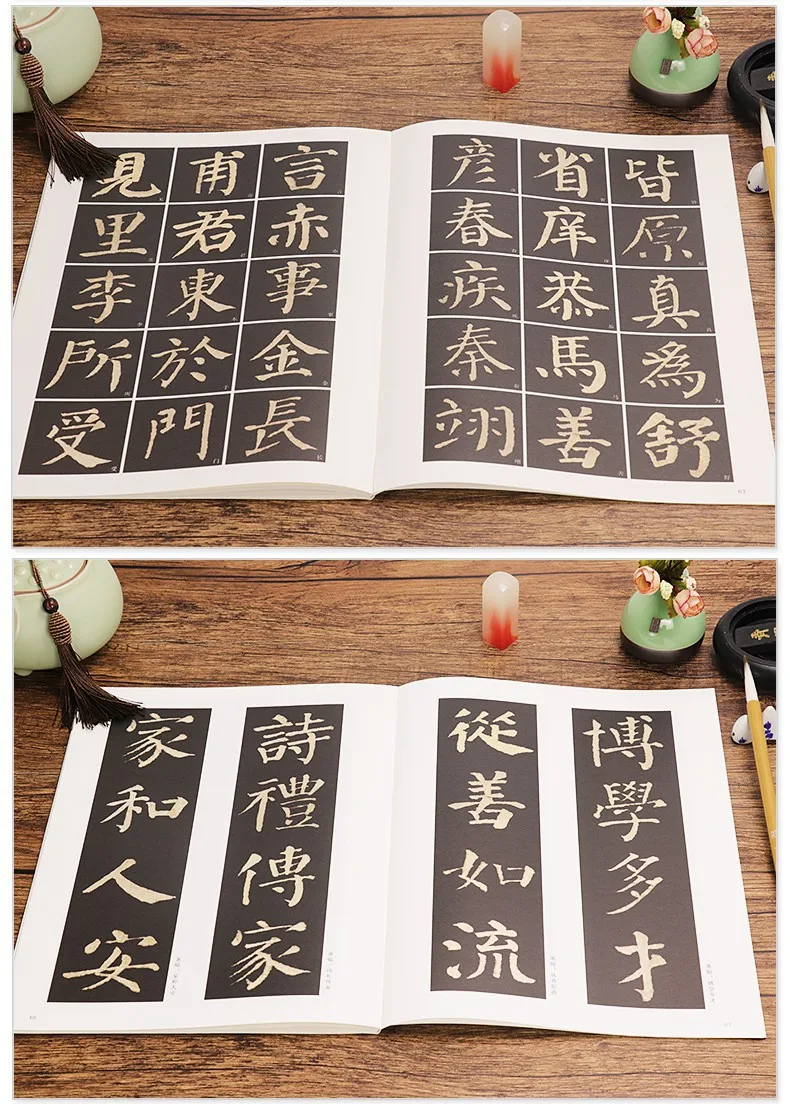 皆原真為舒
省庠恭馬善
彦春疾秦翊
言赤事金長
甫君東於門
見里李所受
博學多才
從善如流
詩禮傳家
家和人安